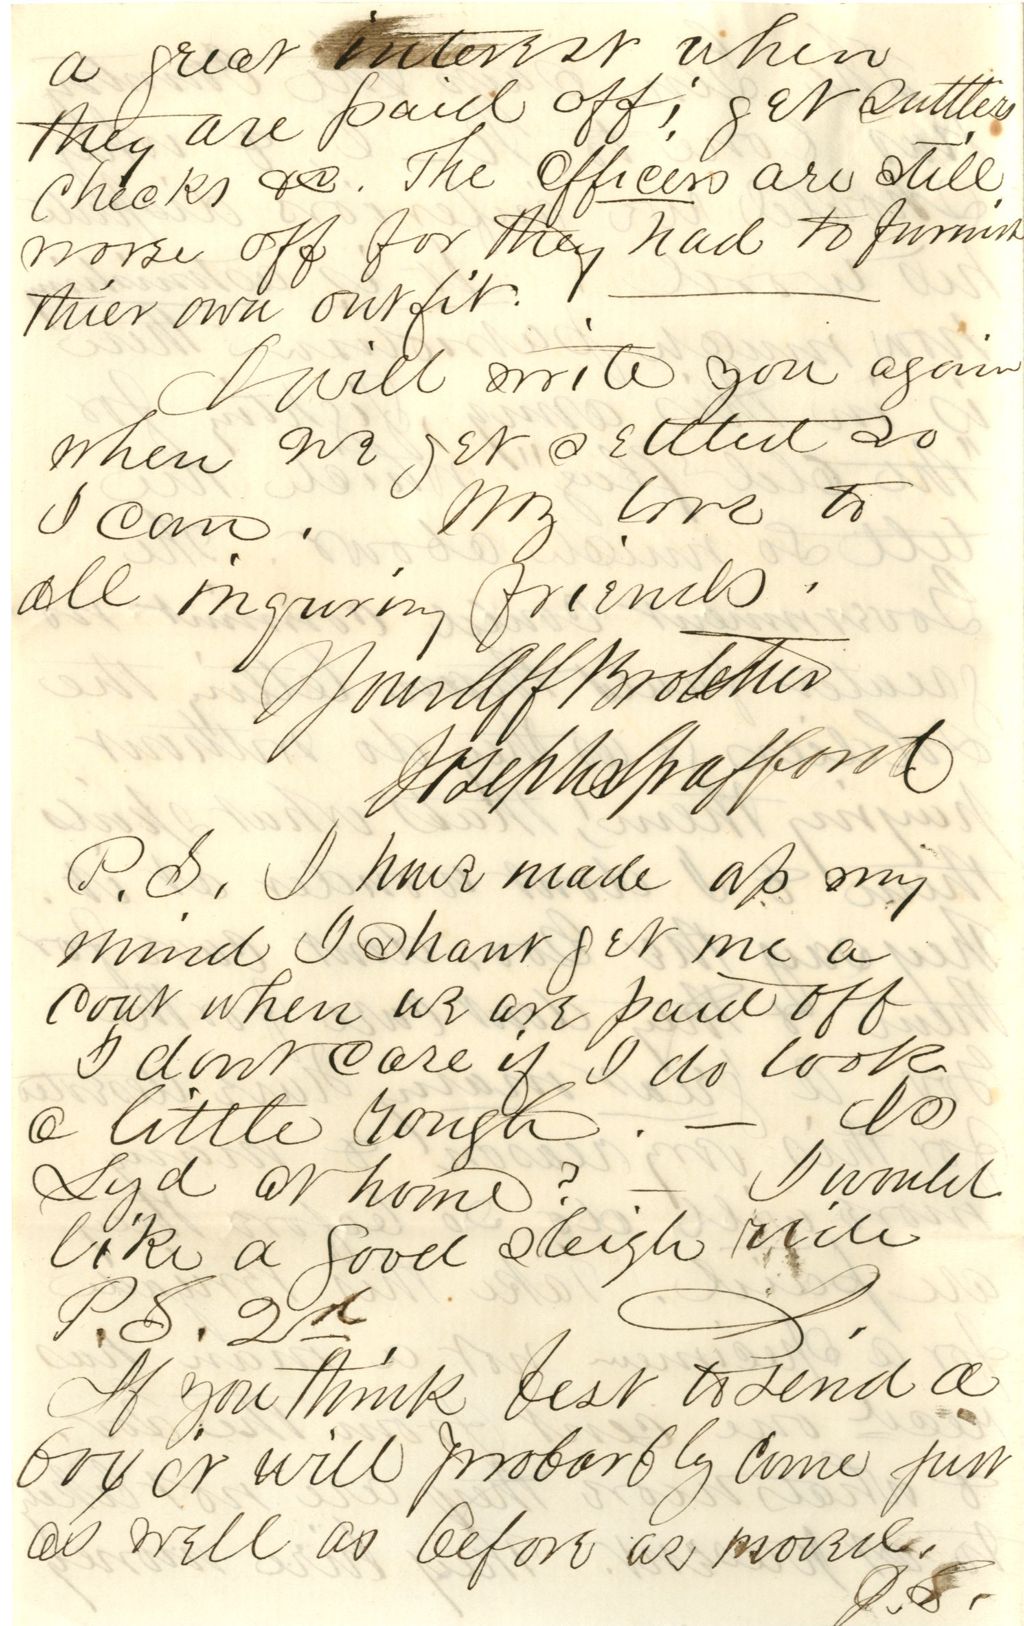 a great interest when
they are paid off; get suttlers
checks &c. The officers are still
worse off for they had to furnish
thier own outfit.
I will write you again
when we get settled so
I can. My love to
all inquring friends.
Your Aff Brother
Joseph Spafford
P.S. I have made up my
mind I shant get me a
coat when we are paid off
I dont care if I do look
a little rough. — Is
Syd at home? — I would
like a good sleigh ride
P.S. 2d J.
If you think best to send a
box it will probarbly come just
as well as before we moved.
J.S.